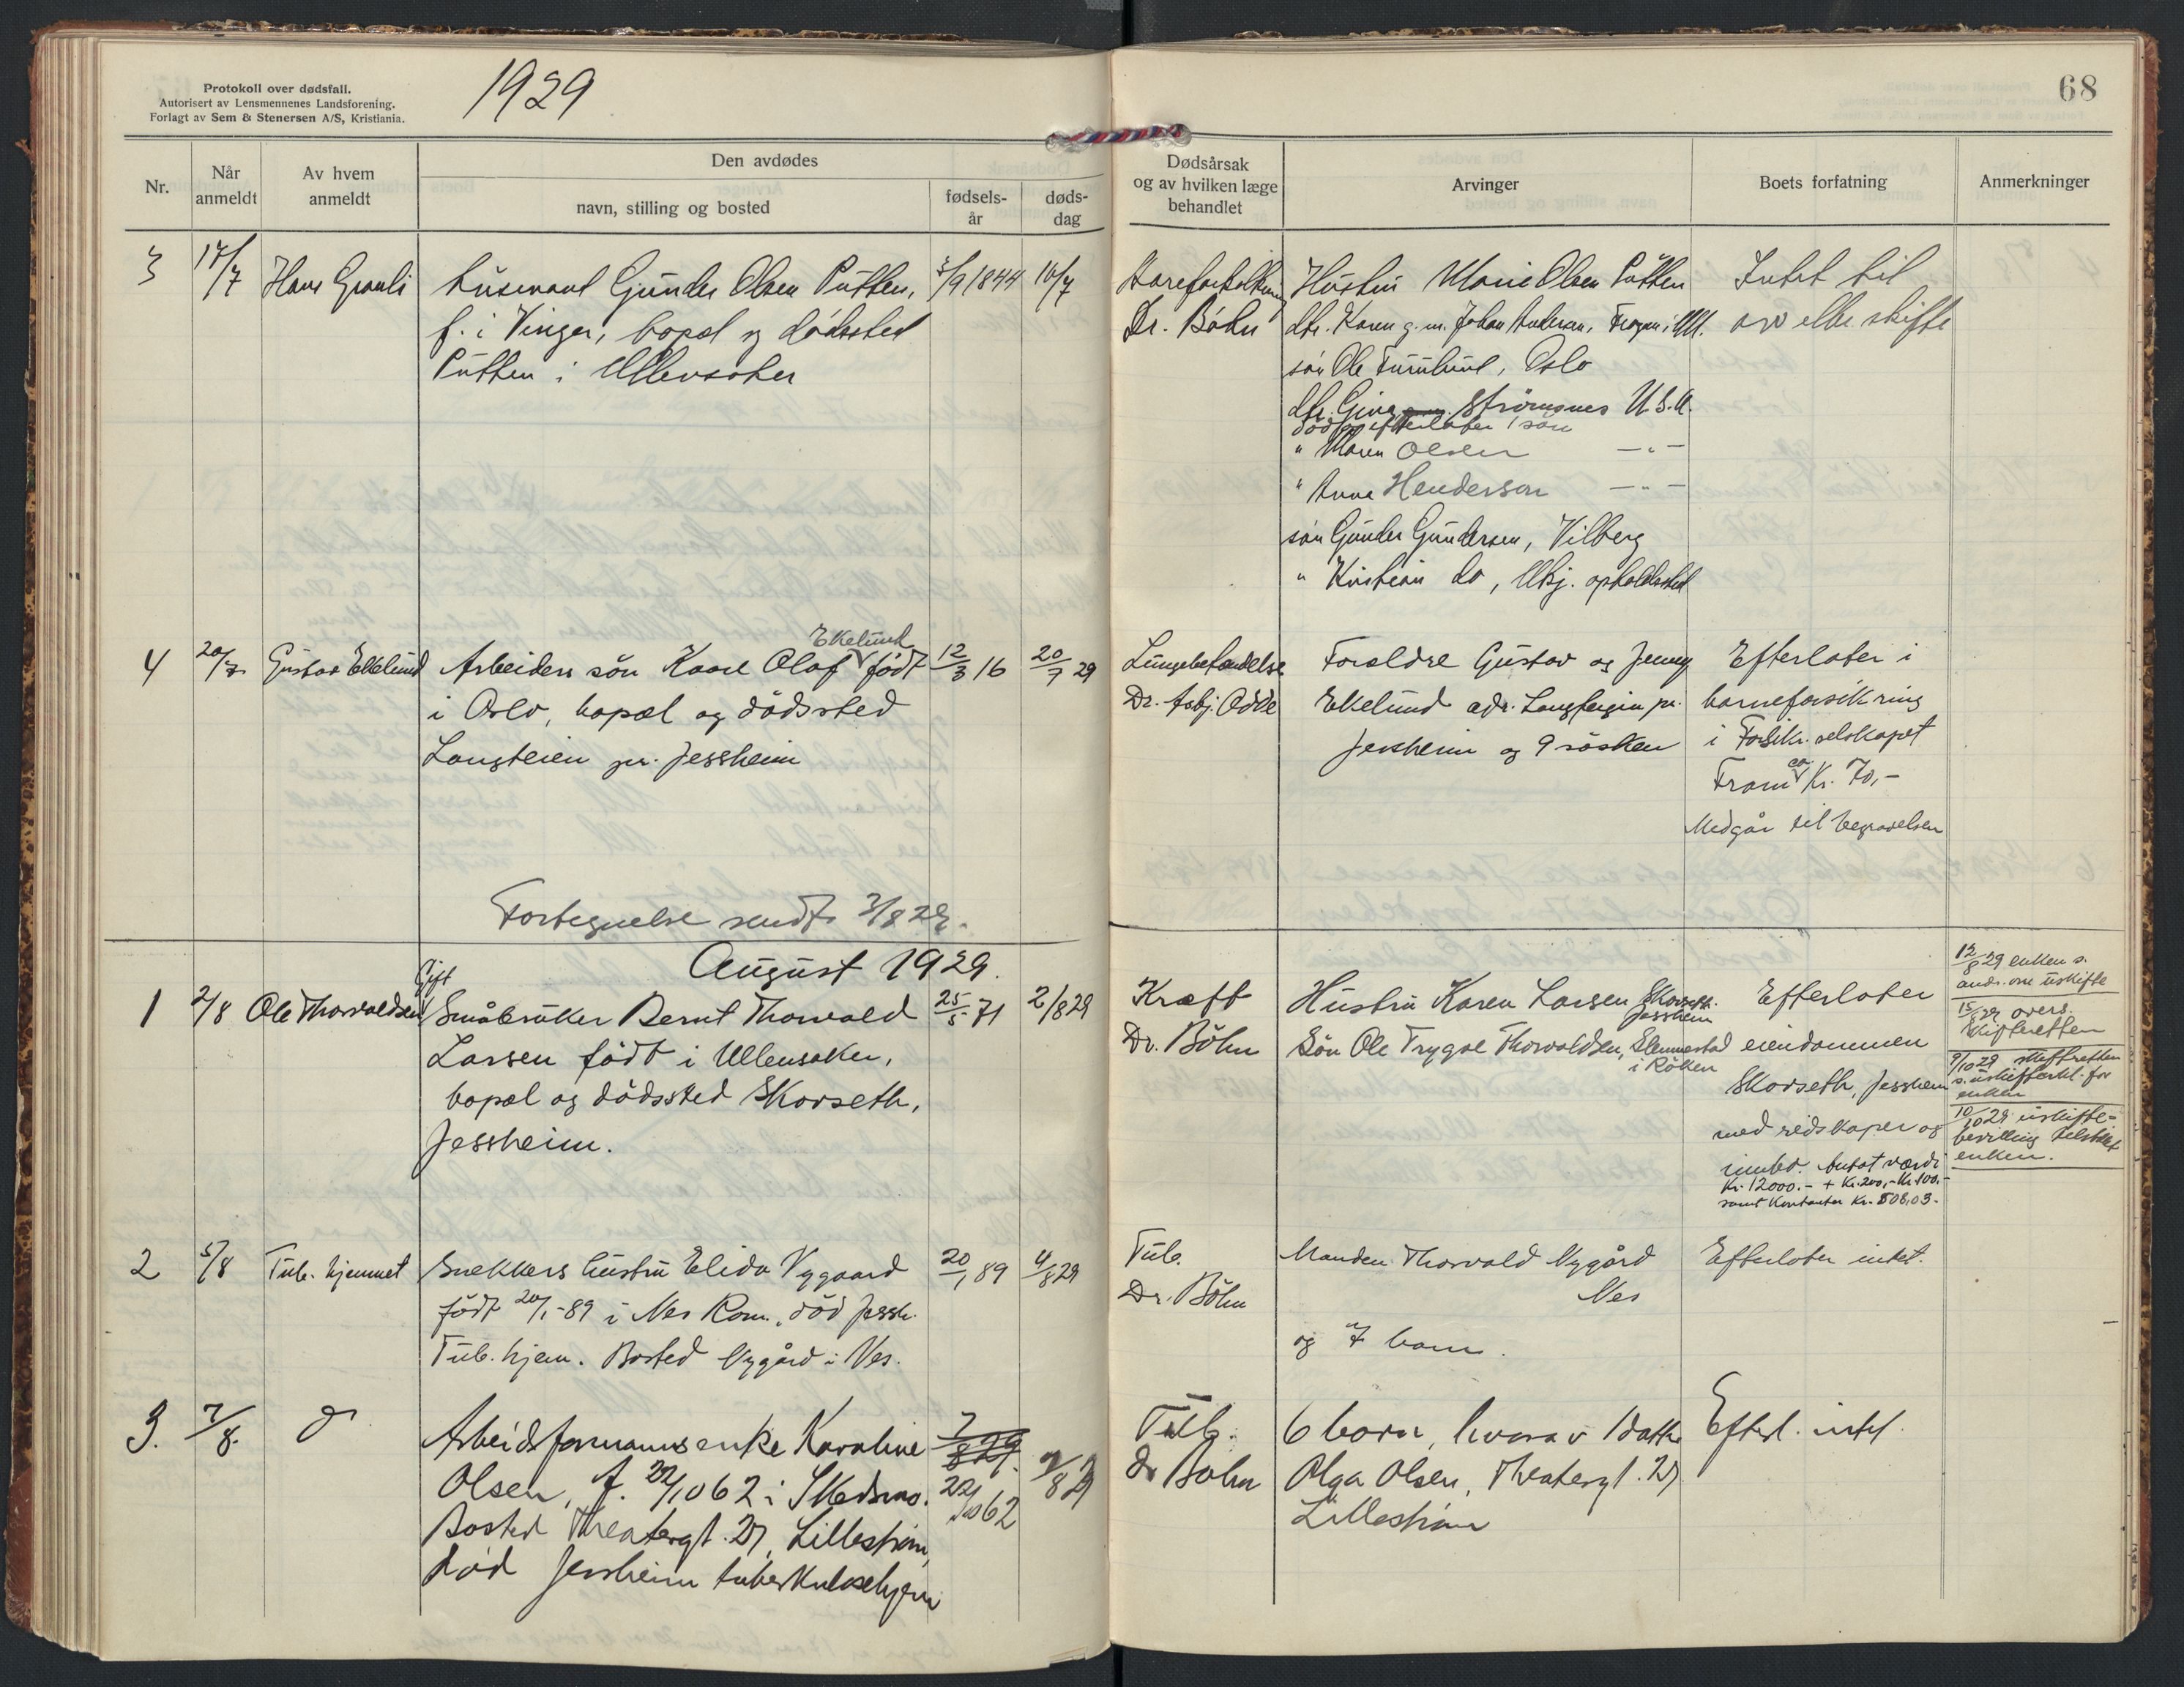 Protokoll over dødsfall.
Autorisert av Lensmennenes Landsforening.
Forlagt av Sem & Stenersen A/S, Kristiania.
1929
68
Nr.
Når anmeldt
Av hvem anmeldt
Den avdødes
navn, stilling og bosted
fødsels-år
døds-dag
Dødsårsak og av hvilken læge behandlet
Arvinger
Boets forfatning
Anmerkninger
3
17/7
Hans Grauli
husmand Gunder Olsen Putten,
f. i Vinger, bopæl og dödssted
Putten i Ullensaker
5/9 1844
16/7
Dr. Böhn
Hustru Marie Olsen Putten
dtr. Karen g. m. Johan Andersen, Frogn i Ull.
sön Ole Furulund, Oslo
dtr. Gina Strömsnes U.S.A.
död, efterlater 1 sön
" Maren Olsen — " —
" Anna Henderson — " —
sön Gunder Gundersen, Vilberg
" Kristian do, Ubkj. opholdssted
Intet til
arv eller skifte
4
20/7
Gustav Ekelund
Ekelund
Arbeiders sön Kaare Olaf V födt
i Oslo, bopæl og dödssted
Langteien pr. Jessheim
12/3 16
20/7 29
Lungebetændelse
Dr. Asbj. Odde
Forældre Gustav og Jenny
Ekelund adr. Langteien pr.
Jessheim og 9 sösken
Efterlater i
barneforsikring
i Forsikr. selskapet
Fram ca. Kr. 70,-
Medgår til begravelsen
Fortegnelse sendt 3/8 29.
August 1929.
1
2/8
Ole Thorvaldsen
Gift
Småbruker Bernt Thorvald
Larsen födt i Ullensaker,
bopæl og dödssted Skovseth,
Jessheim.
25/5 71
2/8 29
Kræft
Dr. Böhn
Hustru Karen Larsen Skovseth. Jessheim
Sön Ole Trygve Thorvaldsen, Slemmestad
i Röken
Efterlater
eiendommen
Skovseth, Jessheim
med redskaper og
innbo. Antat værdi
Kr. 12000.- + Kr. 200,- Kr. 100.-
samt Kontanter Kr. 508,03.-
12/8 29 enken s.
andr. om uskifte
15/8 29 overs.
skifteretten
9/10 29 skifteretten
s. uskifteerkl. for
enken
10/10 29 uskifte-
bevilling tilstillet
enken.
2
5/8
Tub. hjemmet
Snekkers hustru Elida Nygaard
födt 20/1-89 i Nes Rom., död Jessh.
Tub. hjem. Bosted Nygård i Nes.
20/1 89
4/8 29
Tub.
Dr. Böhn
Manden Thorvald Nygård
Nes
og 7 barn.
Efterlater intet.
3.
7/8.
Arbeidsformanns enke Karoline
Olsen, f. 22/10 62 i Skedsmo.
Bosted Theatergt. 27, Lilleström,
död Jessheim tuberkulosehjem
7/8 29.
22/10 62
7/8 29
Tub.
dr Böhn
6 barn, hvorav 1 datter
Olga Olsen, Theatergt. 27
Lilleström
Efterl. intet.